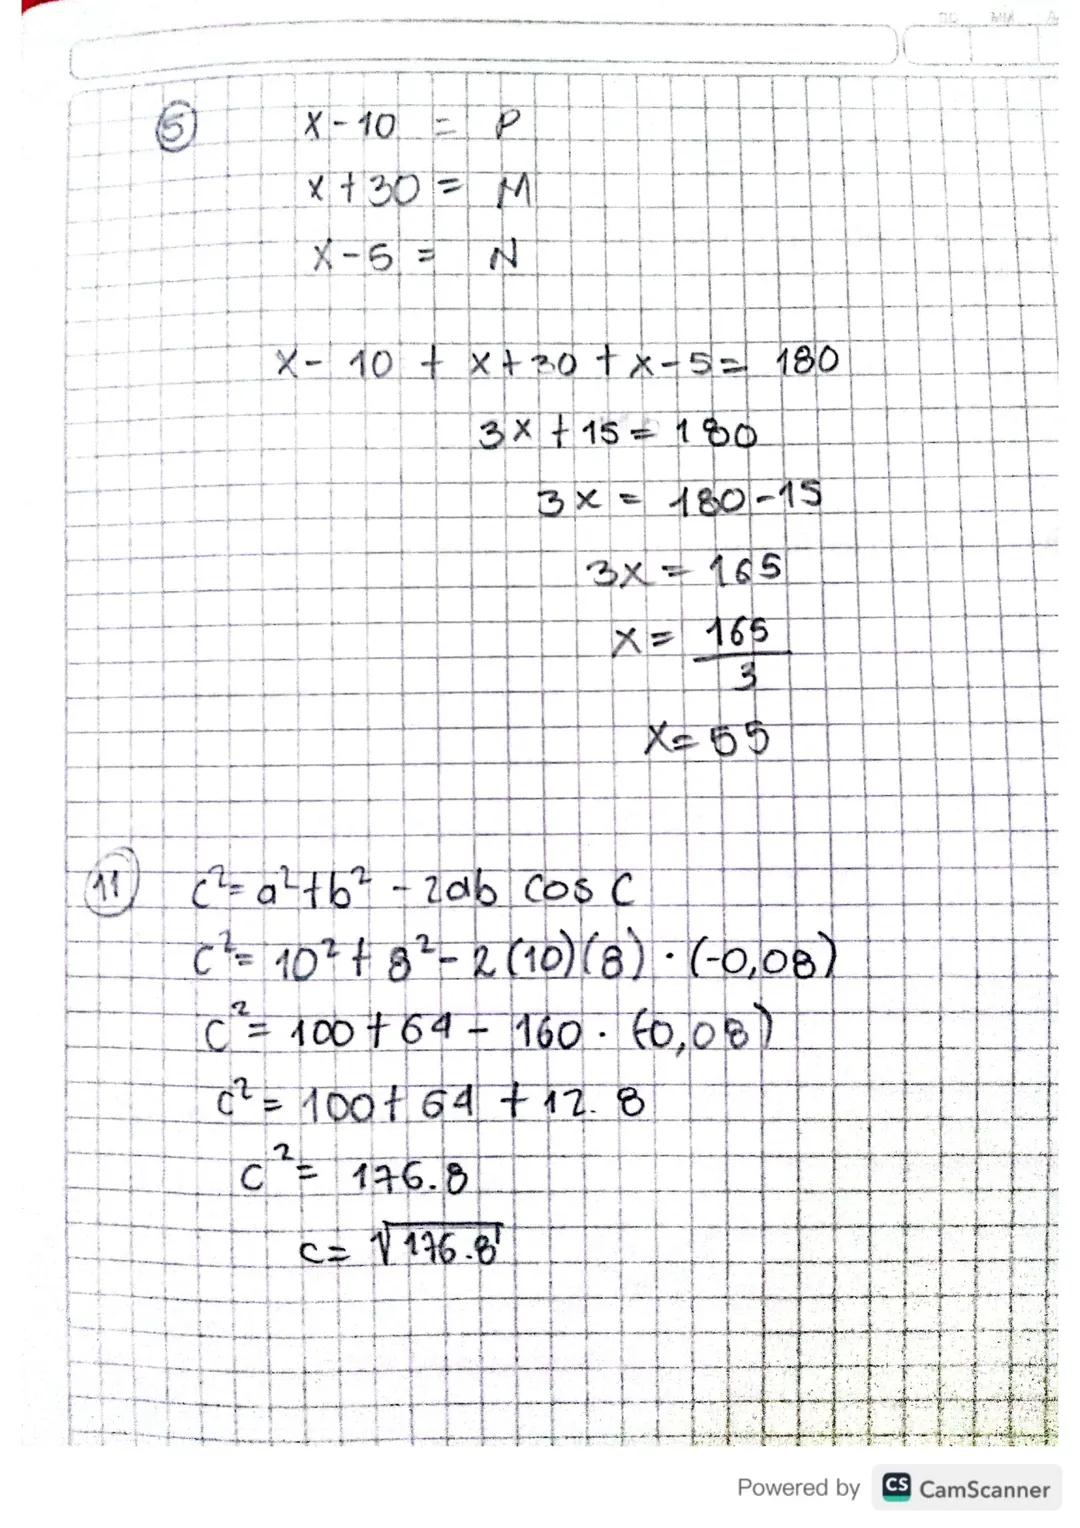 5 x - 10 = P
x + 30 = M
x - 5 = N
x - 10 + x + 30 + x - 5 = 180
3x + 15 = 180
3x = 180 - 15
3x = 165
x = 165/3
x = 55
11 c² = a² + b² - 2ab cos C
c² = 10² + 8² - 2(10)(8) · (-0,08)
c² = 100 + 64 - 160 · (-0,08)
c² = 100 + 64 + 12.8
c² = 176.8
c = √176.8
Powered by CS CamScanner